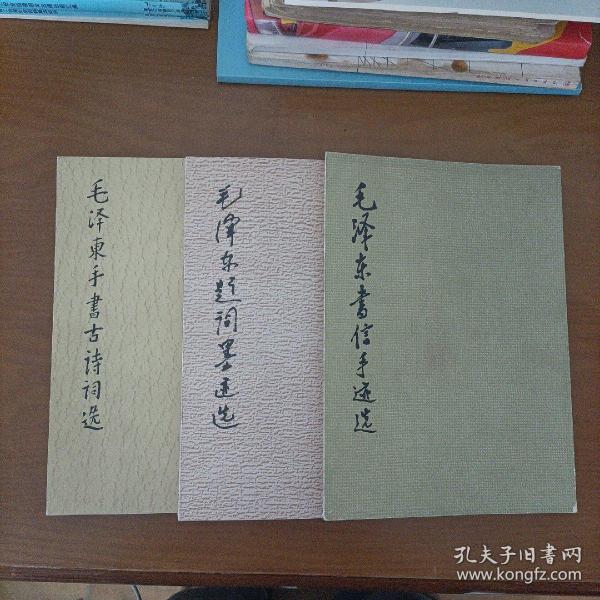 毛泽東手書古诗词选
毛泽东题词墨迹选
毛泽东书信手迹选
孔夫子旧書网
www.kongfz.com